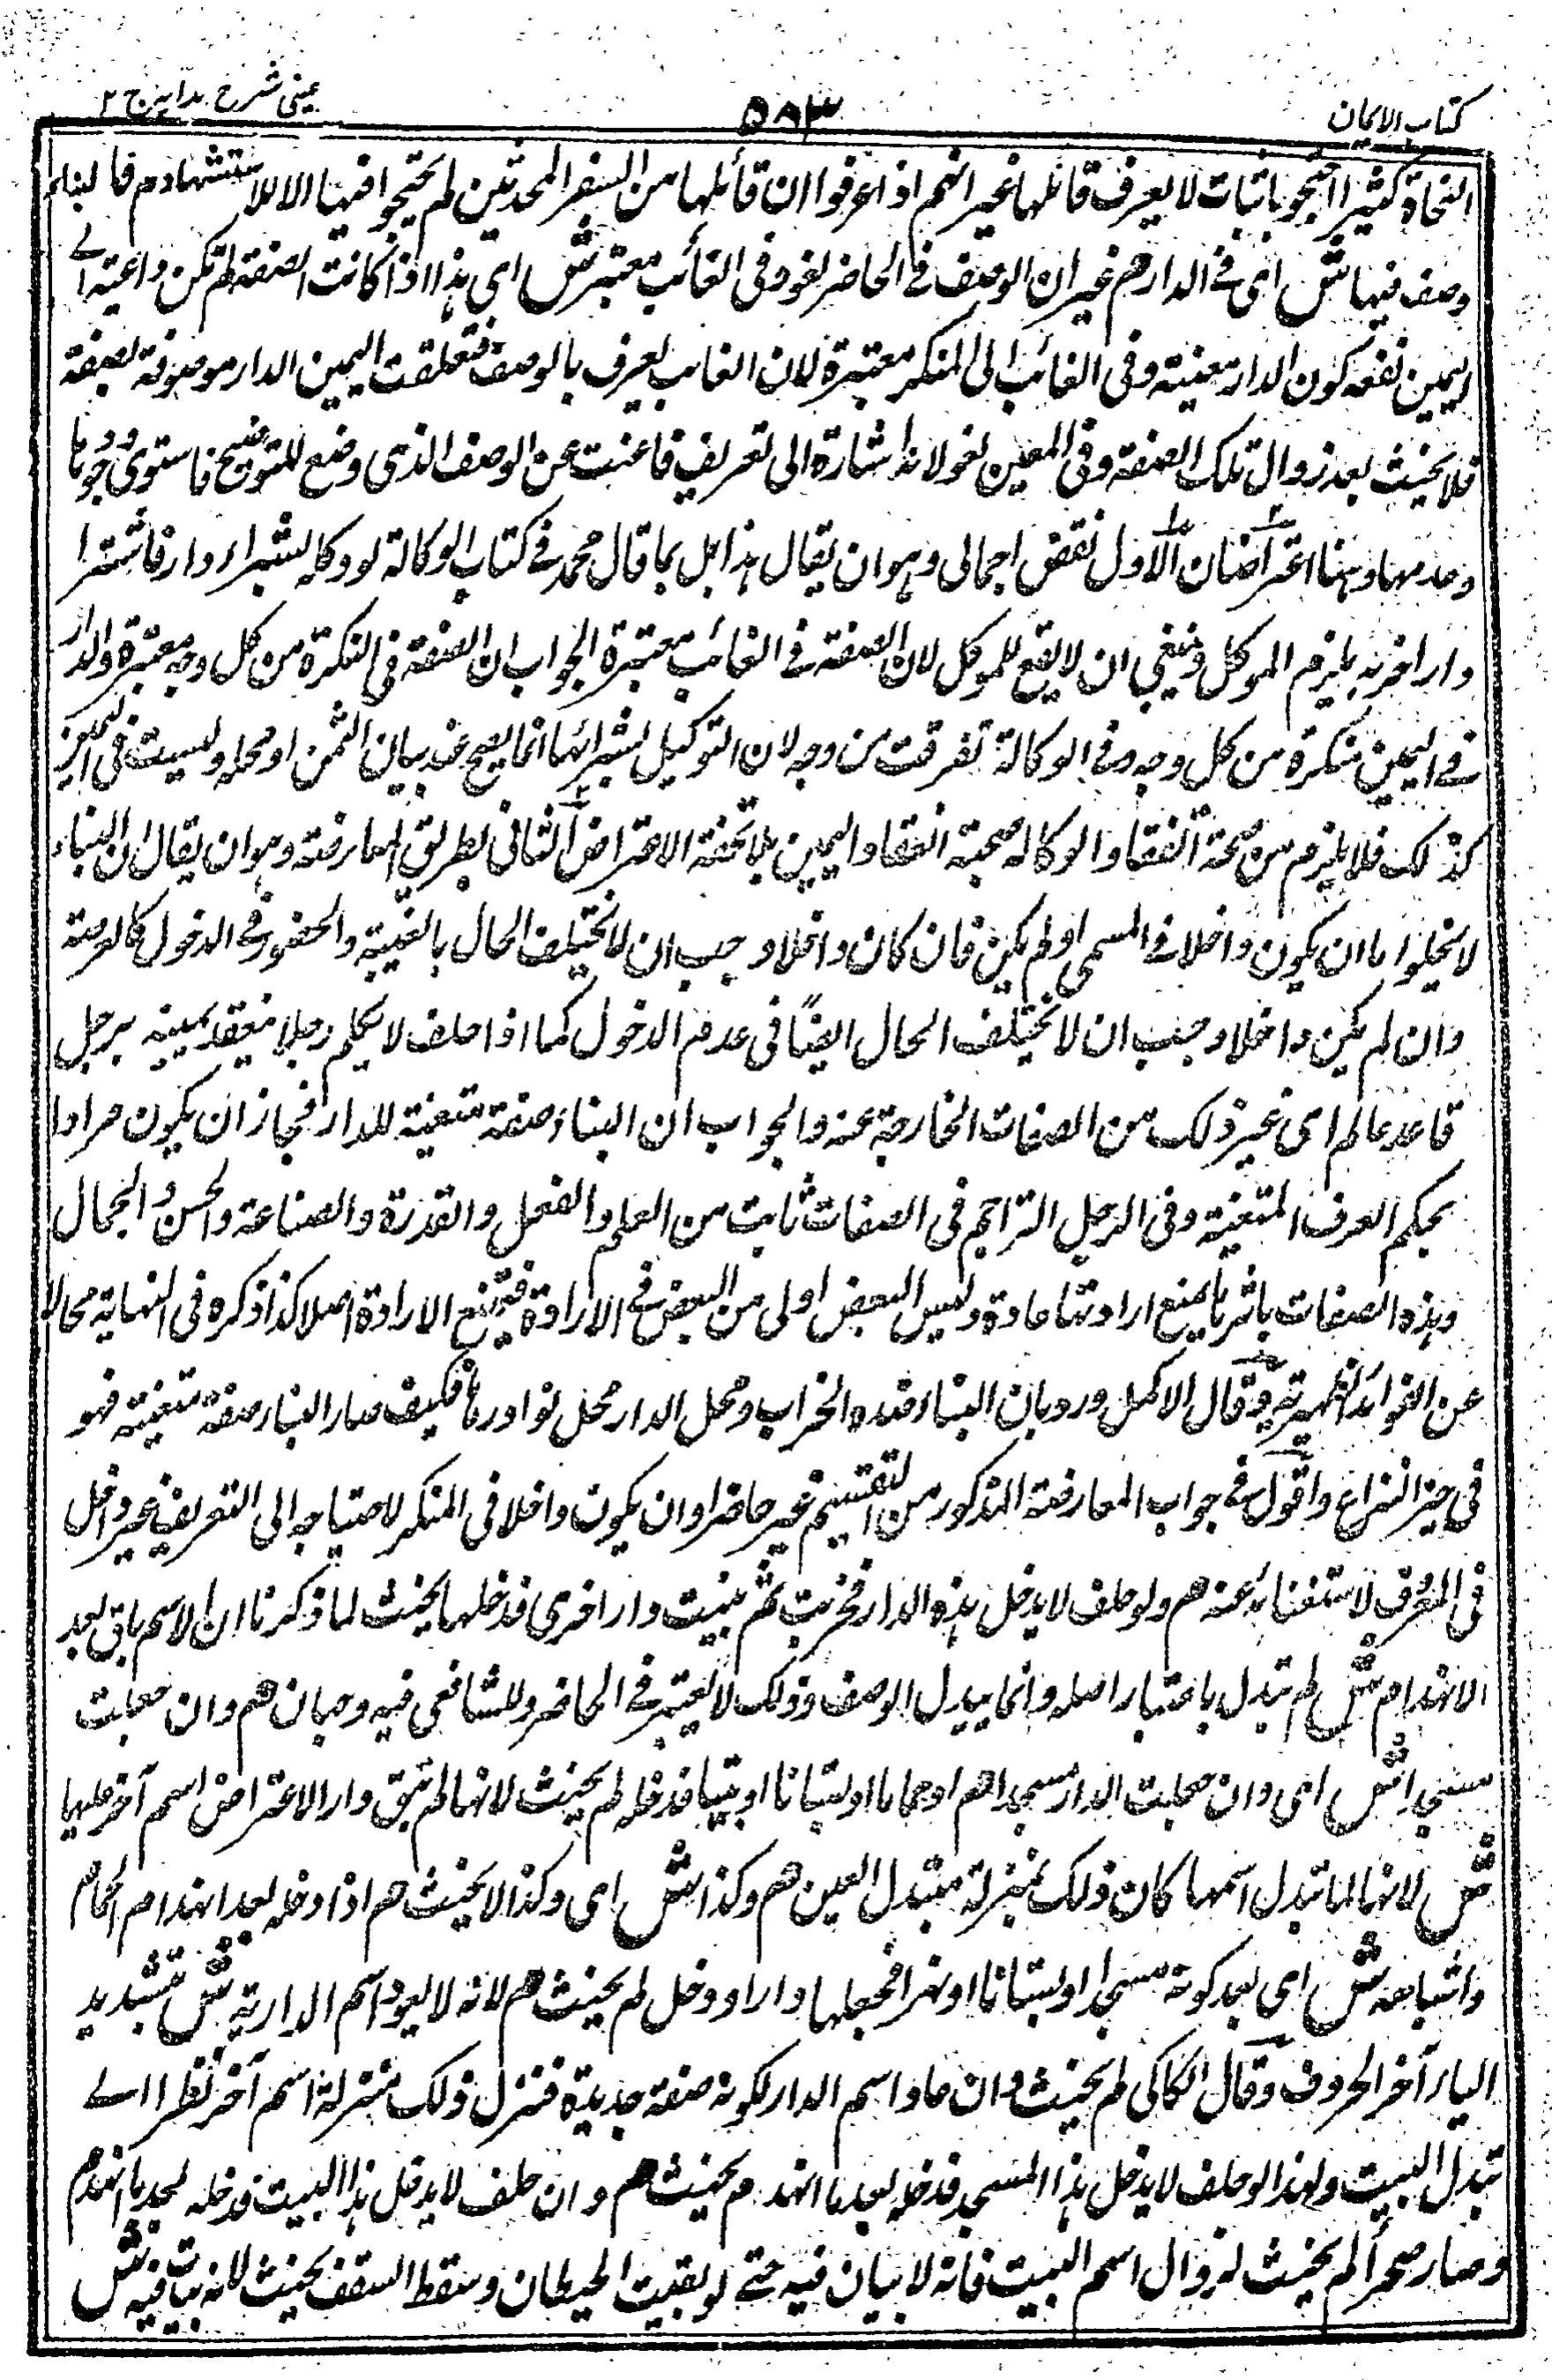 كتاب الايمان
٥٨٣
عينى شرح هدايه ج ٢
النحاة كثيرا احتجوا بابيات لا يعرف قائلها غير انهم اذا عرفوا ان قائلها من المحدثين لم يحتجوا فيها الا للاستشهاد م فالبناء
وصف فيها ش اى فى الدار هم غير ان الوصف فى الحاضر لغو وفى الغائب معتبر ش اى هذا اذا كانت الصفة لم تكن داعية الے
اليمين نفعه كون الدار معينة وفى الغائب اى المنكر معتبرة لان الغائب يعرف بالوصف فتعلقت اليمين الدار موصوفة بصفة
فلا يحنث بعد زوال تلك الصفة وفى المعين لغو لانه اشارة الى تعريف فاغنت عن الوصف الذى وضع للتوضيح فاستوى وجودها
وعدمها وههنا اعتراضان الاول نقض اجمالى وهو ان يقال هذا بل بما قال محمد فے كتاب الوكالة لو وكله بشراء دار فاشترا
دارا خربه يلزم الموكل وينبغى ان لا يقع للموكل لان الصفة فے الغائب معتبرة الجواب ان الصفة فى النكرة من كل وجه معتبرة والدار
فے اليمين منكرة من كل وجه وفے الوكالة تعرفت من وجه لان التوكيل بشرائها انما يصح عند بيان الثمن او محله وليست فى اليمين
كذلك فلا يلزم من صحة انعقاد الوكالة صحبة انعقاد اليمين بلا تحفة الاعتراض الثانى بطريق المعارضة وهو ان يقال ان البناء
لا يخلوا ما ان يكون داخلا فے المسمى او لم يكن فان كان داخلا وجب ان لا يختلف الحال بالغيبة والحضور فے الدخول كالعرصة
وان لم يكن داخلا وجب ان لا يختلف الحال ايضًا فى عدم الدخول كما اذا حلف لا يكلم رجلا منعقد يمينه برجل
قاعد عالم اى غير ذلك من الصفات الخارجة عنه والجواب ان البناء صفة متعينة للدار فجاز ان يكون مرادا
بحكم العرف المتعينة وفى الرجل التزاحم فى الصفات ثابت من العلم والفعل والقدرة والصناعة والحسن والجمال
وهذه الصفات باثرها يمنع ارادتها عادة وليس البعض اولى من البعض فے الارادة فيمتنع الارادة اصلا كذا ذكره فى النهاية محالا
عن الفوائد الظهيرية وقال الاكمل ورد بان البناء قده الخراب ومحل الدار محل نوادرها فكيف صار البناء صفة متعينة فهو
فى حيز النزاع واقول فے جواب المعارضة المذكور من التقسيم غير حاضر اوان يكون داخلا فى المنكر لاحتياجه الى التعريف غير داخل
فى المعرف لاستغنائه عنه هم ولو حلف لا يدخل هذه الدار فخربت ثم بنيت دارا اخرى فدخلها يحنث لما ذكرنا ان الاسم باق بعد
الانهدام ش لم تبدل باعتبار اصله وانما يبدل الوصف وذلك لا يعتبر فے الحاضر وللشافعى فيه وجهان هم وان جعلت
مسجدا ش اى وان جعلت الدار مسجدا هم او حماما او بستانا او بيتا فدخله لم يحنث لانها لم تبق دار الاعتراض اسم آخر عليها
ش لانها لما تبدل اسمها كان ذلك بمنزلة متبدل العين هم وكذا ش اى وكذا لا يحنث هم اذا دخله بعد انهدام الحمام
واشباهه ش اى بعد كونه مسجدا او بستانا او نهرا فجعلها دارا ودخل لم يحنث هم لانه لا يعود اسم الدارية ش بتشديد
الياء آخر الحروف وقال الكاكى لم يحنث وان عاد اسم الدار لكونه صفة جديدة فنزل ذلك منزلة اسم آخر نظرا الے
تبدل البيت ولهذا لو حلف لا يدخل هذا المسجد فدخله بعد ما انهدم يحنث هم وان حلف لا يدخل هذا البيت فدخله بعد ما انهدم
وصار صحراً لم يحنث لزوال اسم البيت فانه لا بيان فيه حتے لو بقيت الحيطان وسقط السقف يحنث لانه يبات فيه ش